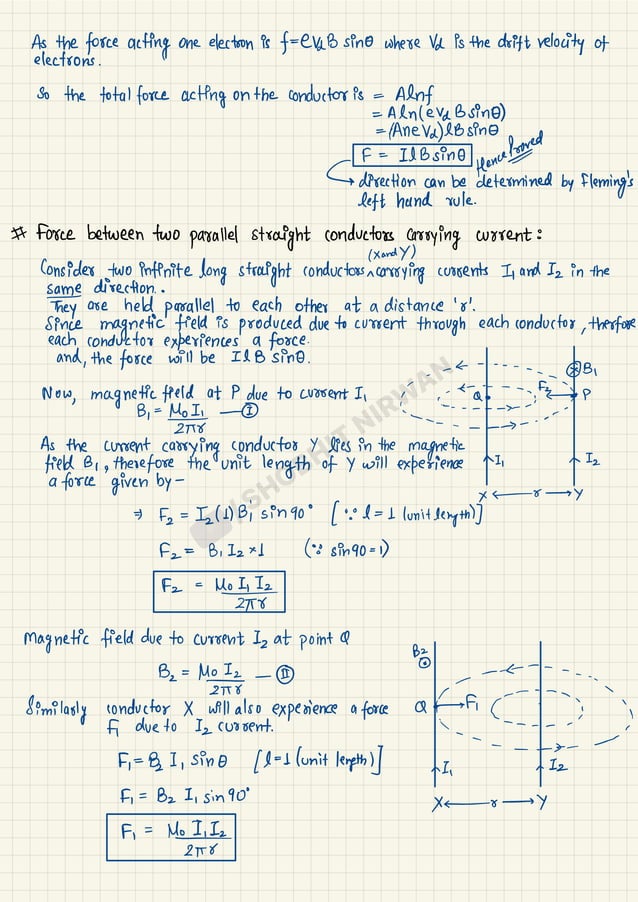 As the force acting one electron is f=eVdB sinθ where Vd is the drift velocity of
electrons.
So the total force acting on the conductor is = Alnf
= Aln(eVd Bsinθ)
= (AneVd)lBsinθ
F = IlBsinθ
Hence Proved
→ direction can be determined by Fleming's
left hand rule.
# Force between two parallel straight conductors carrying current:
(X and Y)
Consider two infinite long straight conductors ^ carrying currents I1 and I2 in the
same direction.
They are held parallel to each other at a distance 'r'.
Since magnetic field is produced due to current through each conductor, therfore
each conductor experiences a force.
and, the force will be IlB Sinθ.
Now, magnetic field at P due to current I1
B1 = M0 I1 / 2πr — I
As the current carrying conductor Y lies in the magnetic
field B1, therefore the unit length of Y will experience
a force given by-
⇒ F2 = I2(1)B1 sin90° [∵ l=1 (unit length)]
F2 = B1 I2 × 1 (∵ sin90=1)
F2 = M0 I1 I2 / 2πr
B1
F2
Q
P
I1
I2
X ← r → Y
SHOBHIT NIRWAN
Magnetic field due to current I2 at point Q
B2 = M0 I2 / 2πr — II
Similarly conductor X will also experience a force
F1 due to I2 current.
F1 = B2 I1 sinθ [l=1 (unit length)]
F1 = B2 I1 sin90°
F1 = M0 I1 I2 / 2πr
B2
Q
F1
I1
I2
X ← r → Y